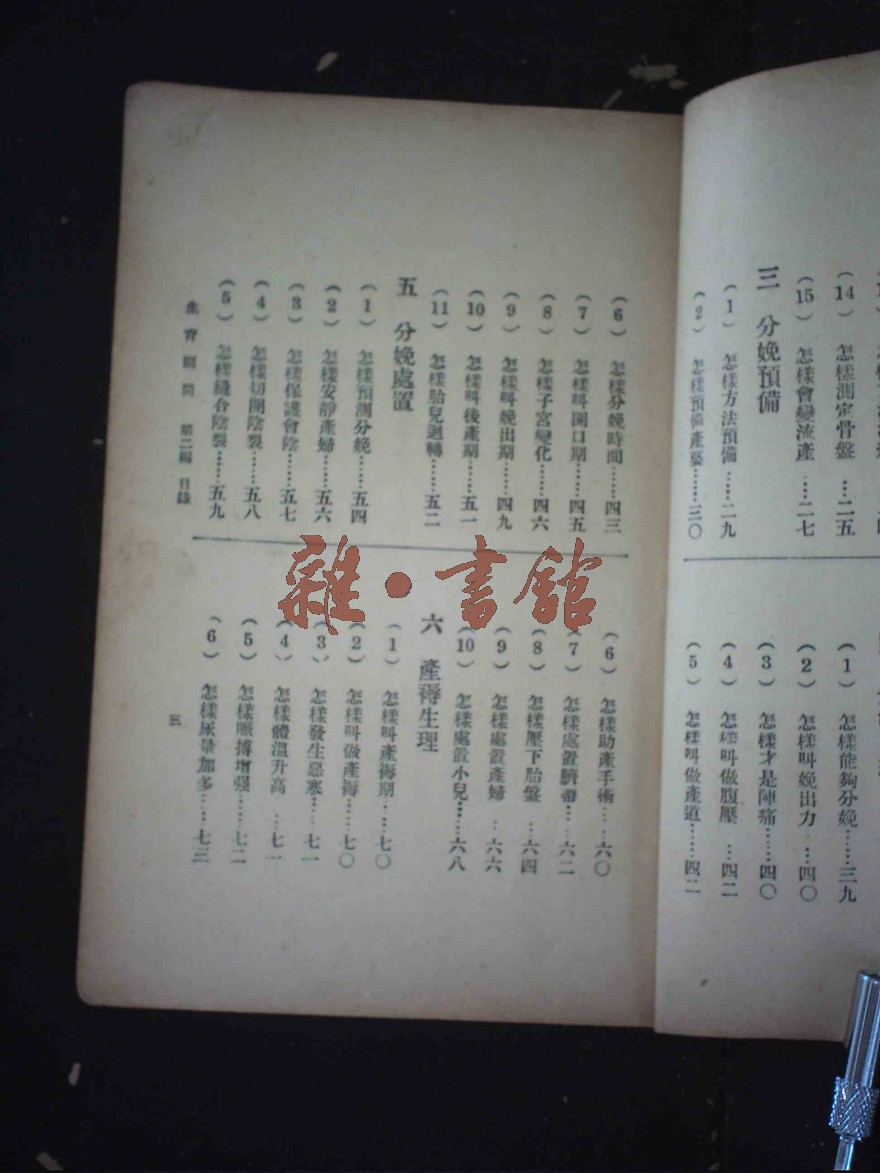 (14) 怎樣測定骨盤…二五
(15) 怎樣會變流產…二七
三 分娩預備
(1) 怎樣方法預備……二九
(2) 怎樣預備產蓐……三〇
(1) 怎樣能夠分娩……三九
(2) 怎樣叫娩出力…四〇
(3) 怎樣才是陣痛……四〇
(4) 怎樣叫做腹壓…四二
(5) 怎樣叫做產道……四二
(6) 怎樣分娩時間……四三
(7) 怎樣叫開口期……四五
(8) 怎樣子宮變化……四六
(9) 怎樣叫娩出期……四九
(10) 怎樣叫後產期……五一
(11) 怎樣胎兒迴轉……五二
五 分娩處置
(1) 怎樣預測分娩……五四
(2) 怎樣安靜產婦……五六
(3) 怎樣保護會陰……五七
(4) 怎樣切開陰裂……五八
(5) 怎樣縫合陰裂……五九
(6) 怎樣助產手術……六〇
(7) 怎樣處置臍帶……六二
(8) 怎樣壓下胎盤…六四
(9) 怎樣處置產婦…六六
(10) 怎樣處置小兒……六八
六 產褥生理
(1) 怎樣叫產褥期……七〇
(2) 怎樣叫做產褥……七〇
(3) 怎樣發生惡寒……七一
(4) 怎樣體溫升高…七一
(5) 怎樣脈搏增强……七二
(6) 怎樣尿量加多……七三
生育顧問 第二編 目錄
三
雜·書館